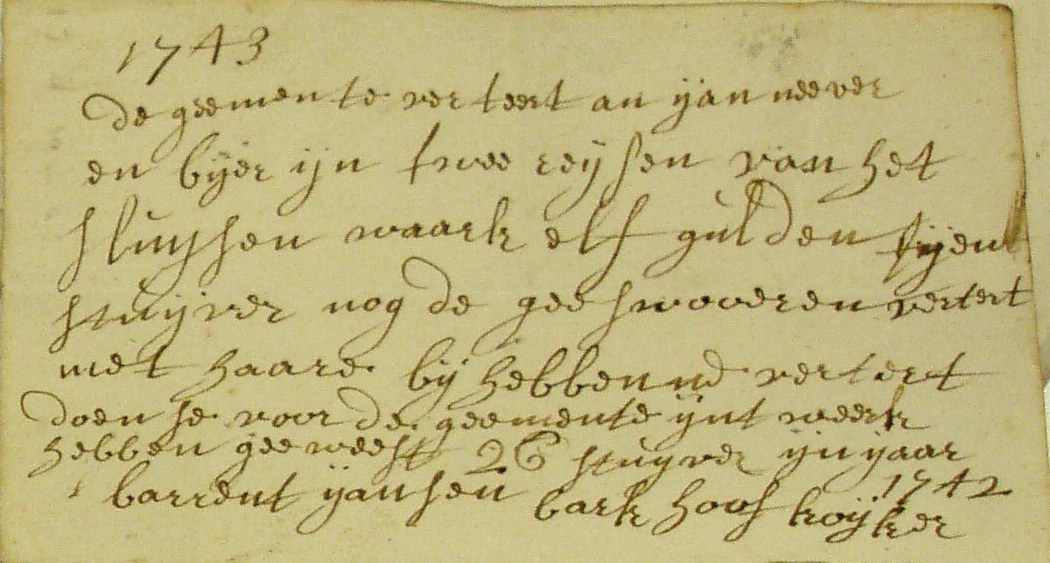 1743
de geemente verteert an yan neever
en byer yn twee reysen van het
sluysen waark elf gulden tyen
stuyver nog de geeswooeren vertert
met haare by hebbenne vertert
doen se voor de geemente ynt weerk
hebben geeweest 26 stuyver yn yaar
1742
barrent yansen barkhoof koyker